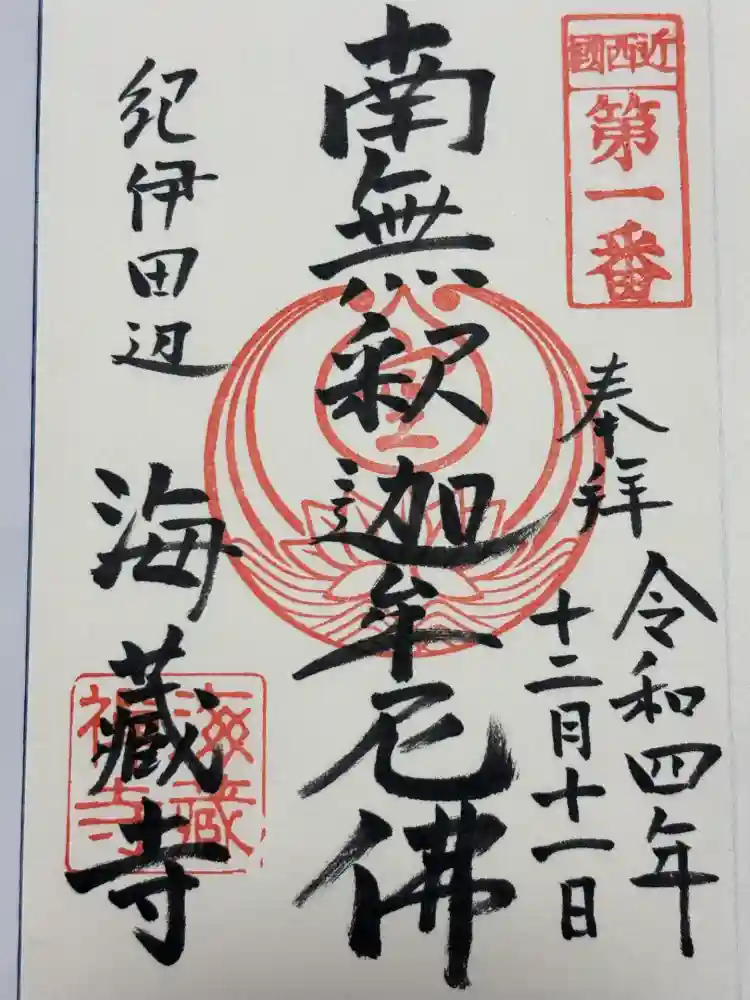 近西國
第一番
奉拜
令和四年
十二月十一日
南無釈迦牟尼佛
紀伊田辺
海蔵寺